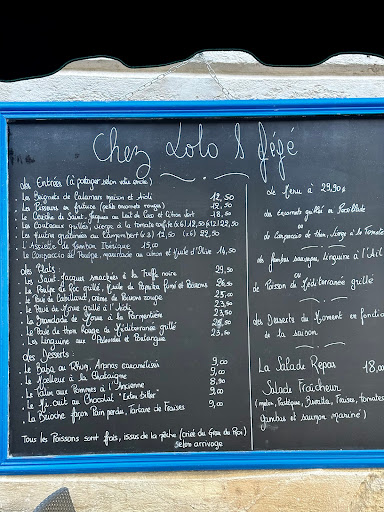 Chez Lolo & Féfé
des Entrées (à partager selon votre envie)
Les Beignets de Calamars maison et Aïoli 12,50
Les Poissons en friture (petits rougets) 12,50
Le Ceviche de Saint-Jacques au Lait de Coco et Citron Vert 18,50
Les Couteaux grillés, Vierge à la tomate confite (x6) 12,50 (x12) 22,50
Les Huîtres gratinées au (x3) 12,50 (x6) 22,50
L'Assiette de Jambon Ibérique 15,00
Le Carpaccio de Poulpe, au citron et Huile d'Olive 14,50
des Plats :
Les Saint-Jacques snackées à la Truffe noire 29,50
Le Poulpe de Roc grillé, Huile de Paprika Fumé et Poivrons 26,50
Le Pavé de Cabillaud, crème de Poivrons rouges 25,50
Le Pavé de Morue grillé à l'Aïoli 23,50
La Brandade de Morue à la Parmentière 23,50
Le Pavé de thon rouge de Méditerranée grillé 25,50
Les Linguine aux Palourdes et Poutargue 23,50
des Desserts :
Le Baba au Rhum, Ananas caramélisés 9,00
Le Moelleux à la Châtaigne 9,00
Le Flan aux Pommes à l'Ancienne 8,50
Le Mi-cuit au Chocolat "Extra bitter" 9,00
La Brioche façon Pain perdu, Tartare de Fraises 9,00
Tous les Poissons sont frais, issus de la pêche (criée du Grau du Roi)
selon arrivage
de Menu à 29,90
ou Carpaccio de thon, Vierge à la Tomate
de gambas sauvages, Linguine à l'Ail
ou
de Poisson de Méditerranée grillé
des Desserts du Moment en fonction
de la saison
La Salade Repas 18,00
Salade Fraîcheur
(melon, Pastèque, Burrata, Fraises, tomates
Gambas et saumon mariné)